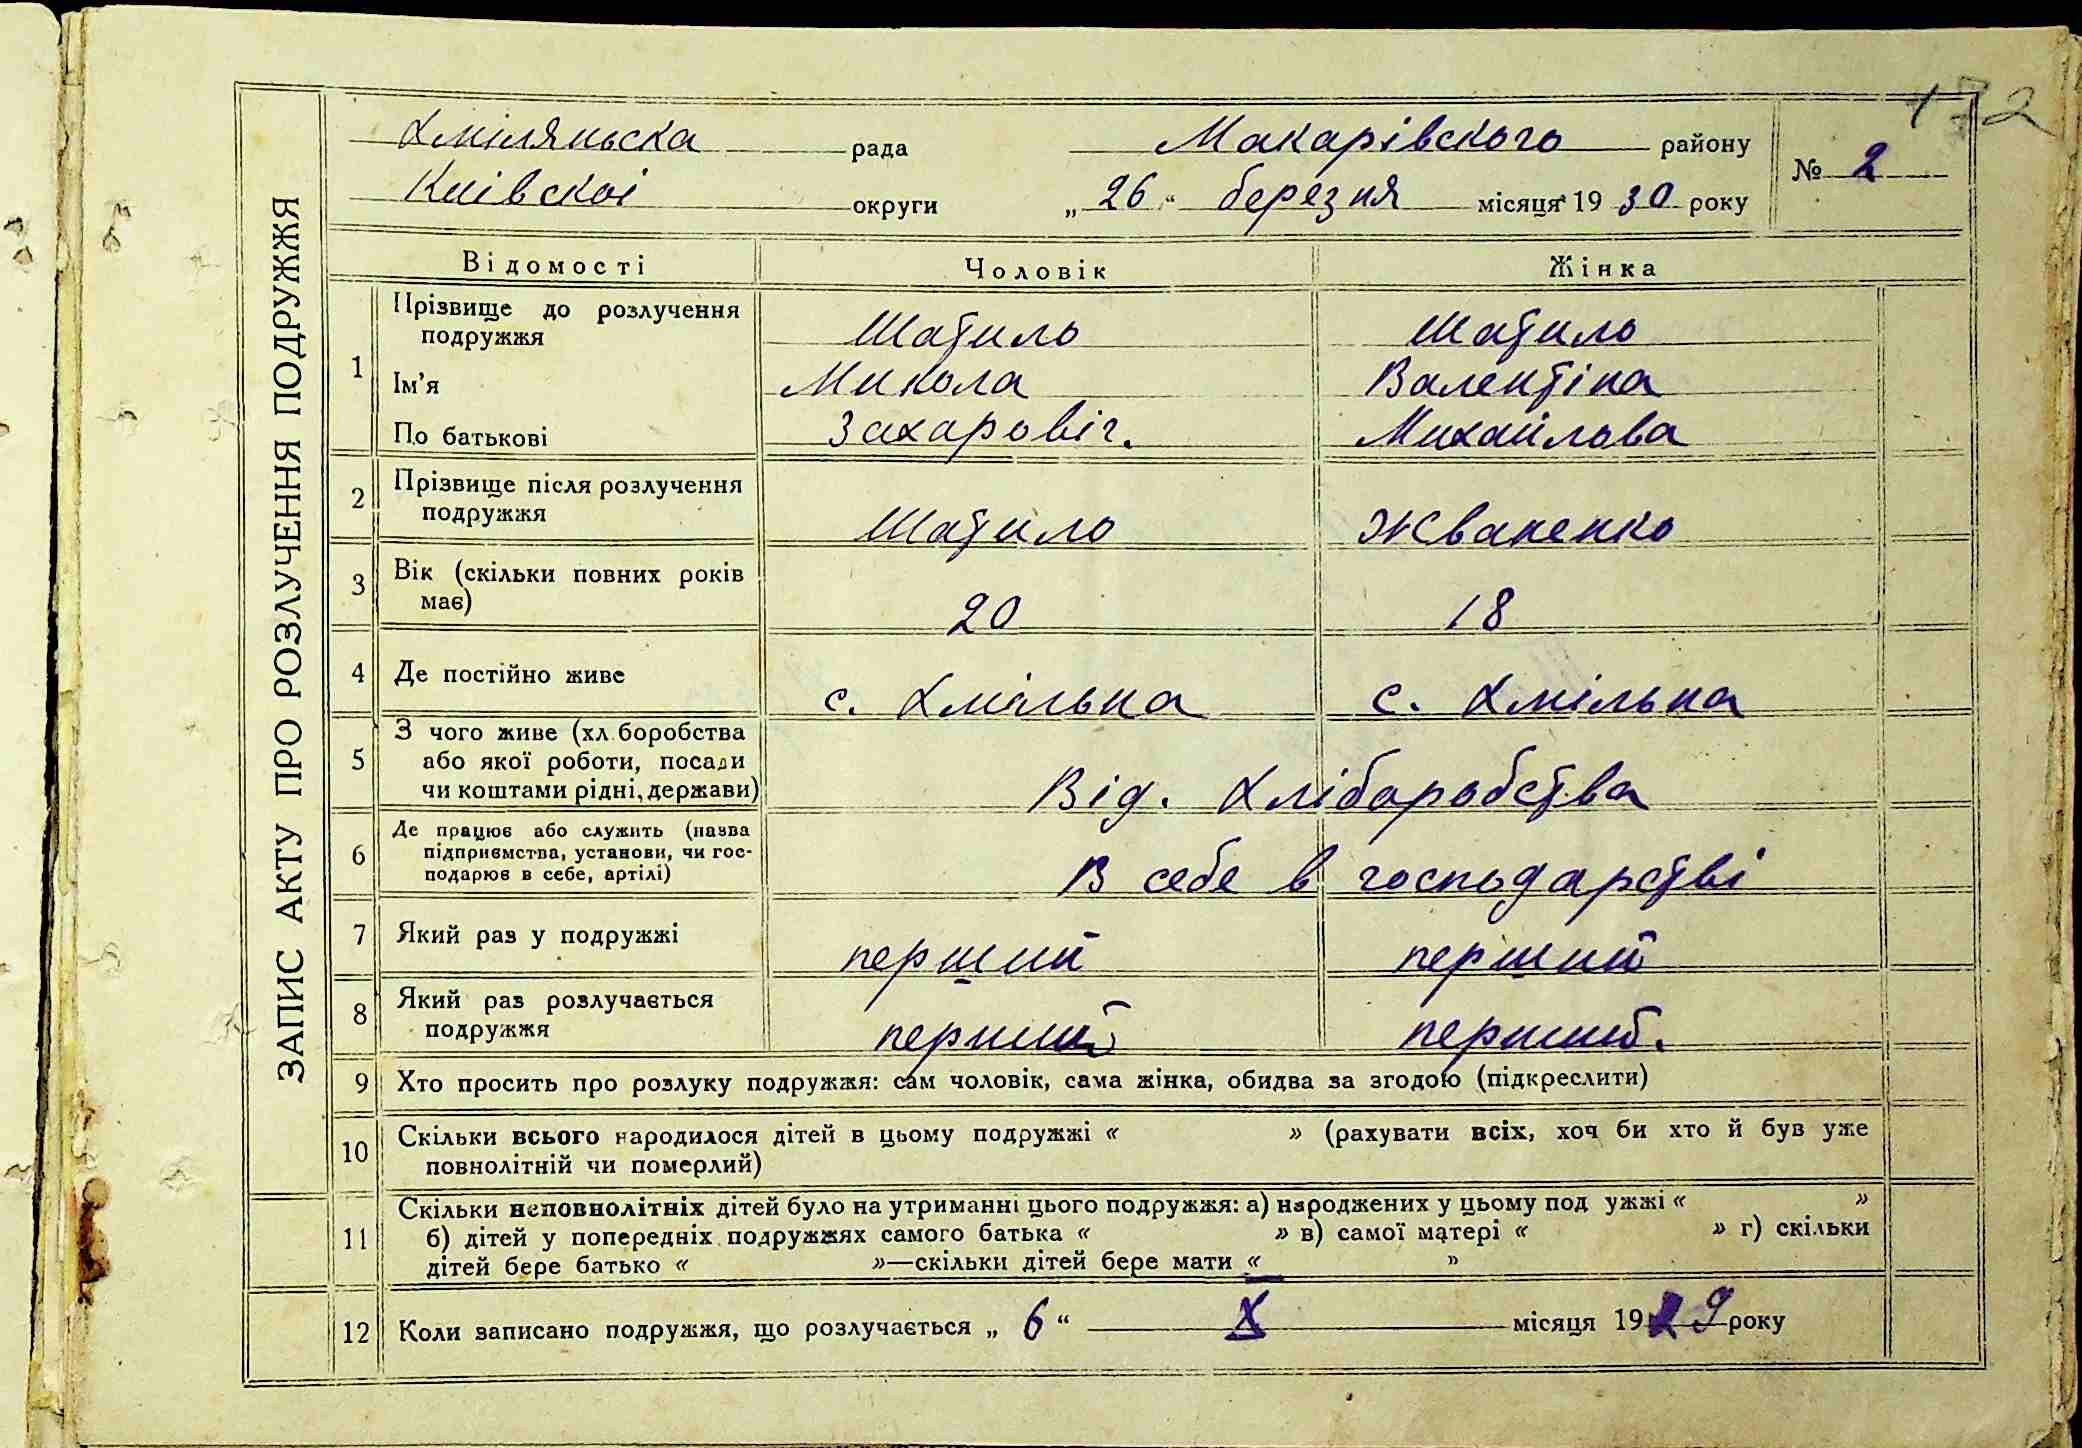 172
ЗАПИС АКТУ ПРО РОЗЛУЧЕННЯ ПОДРУЖЖЯ
Хміляньска рада Макарівского району
№ 2
Київскоі округи „ 26 “ березня місяця 19 30 року
Відомості Чоловік Жінка
1 Прізвище до розлучення
подружжя Шатило Шатило
Ім’я Микола Валентіна
По батькові Захаровіч. Михайлова
2 Прізвище після розлучення
подружжя Шатило Жваненко
3 Вік (скільки повних років
має) 20 18
4 Де постійно живе с. Хмільна с. Хмільна
5 З чого живе (хл.боробства
або якої роботи, посади
чи коштами рідні, держави) Від. Хлібаробства
6 Де працює або служить (назва
підприємства, установи, чи гос-
подарює в себе, артілі) В себе в господарстві
7 Який раз у подружжі перший перший
8 Який раз розлучається
подружжя перший перший.
9 Хто просить про розлуку подружжя: сам чоловік, сама жінка, обидва за згодою (підкреслити)
10 Скільки всього народилося дітей в цьому подружжі « » (рахувати всіх, хоч би хто й був уже
повнолітній чи померлий)
11 Скільки неповнолітніх дітей було на утриманні цього подружжя: а) народжених у цьому под ужжі « »
б) дітей у попередніх подружжях самого батька « » в) самої матері « » г) скільки
дітей бере батько « »—скільки дітей бере мати « »
12 Коли записано подружжя, що розлучається „ 6 “ X місяця 19 29 року